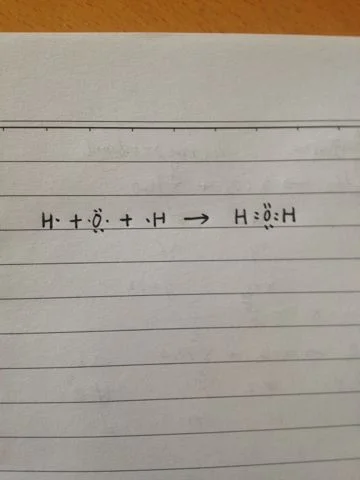 H· + ·Ö̤· + ·H → H:Ö̤:H